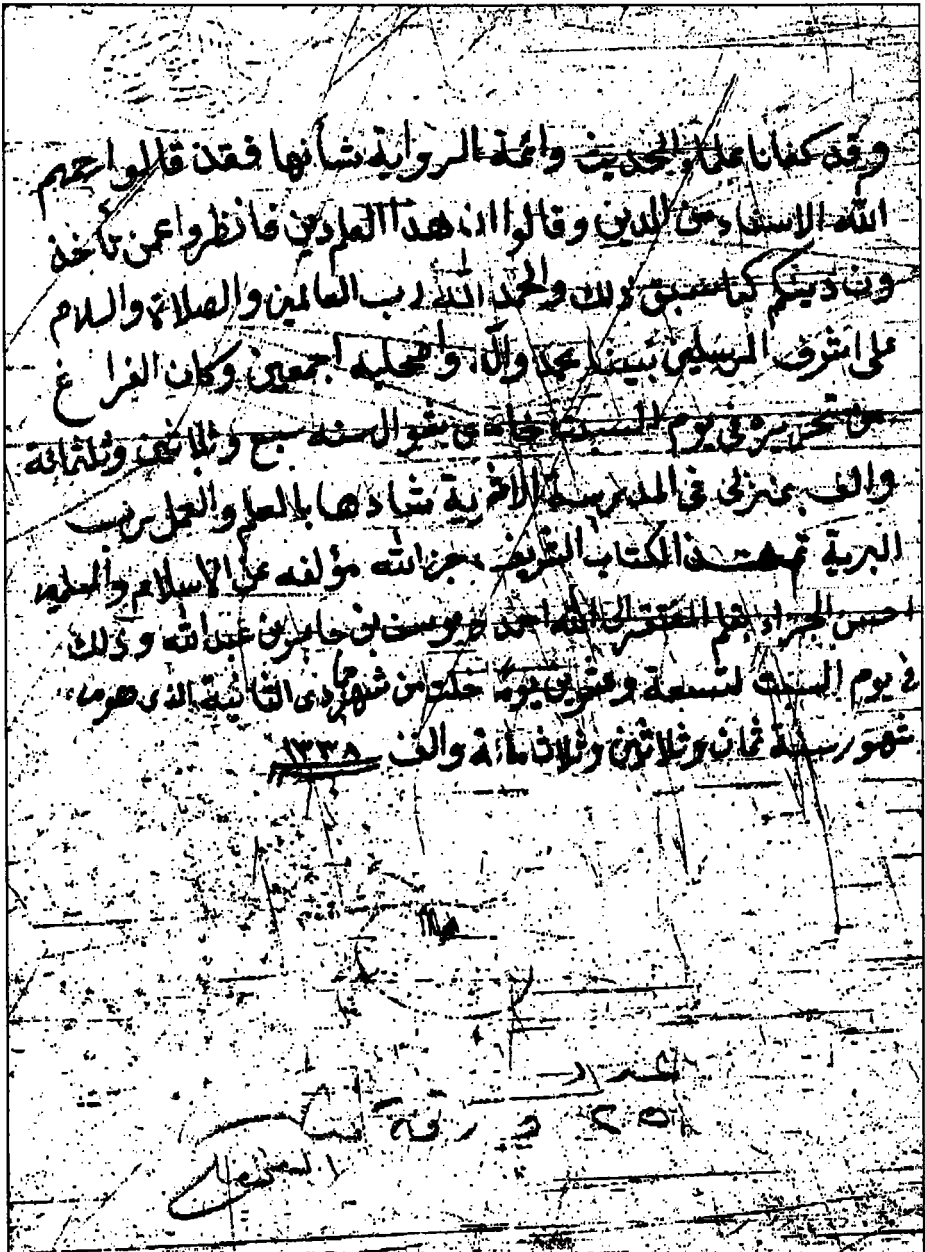 وقد كفانا علماء الحديث وائمة الرواية شأنها فقد قالوا رحمهم
الله الاسناد من الدين وقالوا ان هذا العلم دين فانظروا عمن تأخذ
ون دينكم كما سبق ذلك والحمد لله رب العالمين والصلاة والسلام
على اشرف المرسلين نبينا محمد وآله واصحابه اجمعين وكان الفراغ
من تحريره في يوم السبت شوال سنه سبع وثلاثين وثلثمائة
والف بمنزلى فى المدرسة بالعلم والعمل رب
البرية تم هذا الكتاب الشريف جزا الله مؤلفه عن الاسلام والمسلمين
احسن الجزاء بقلم المفتقر الى الله احمد بن يوسف بن جابر بن عبدالله وذلك
في يوم السبت لتسعة وعشرين يوما خلت من شهر جمادى الثانية الذى هو من
شهور سنة ثمان وثلاثين وثلاث مائة والف ١٣٣٨
ورقة